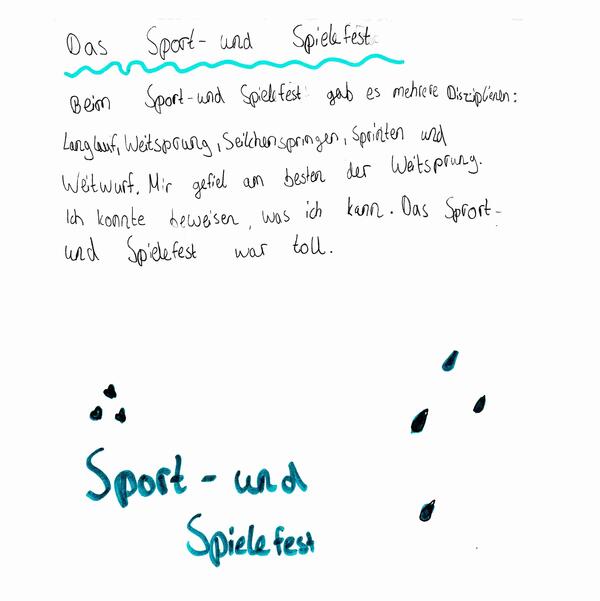 Das Sport- und Spielefest
Beim Sport-und Spielefest gab es mehrere Disziplienen:
Langlauf, Weitsprung, Seilchenspringen, Sprinten und
Weitwurf. Mir gefiel am besten der Weitsprung.
Ich konnte beweisen, was ich kann. Das Sprort-
und Spielefest war toll.
Sport- und
Spielefest